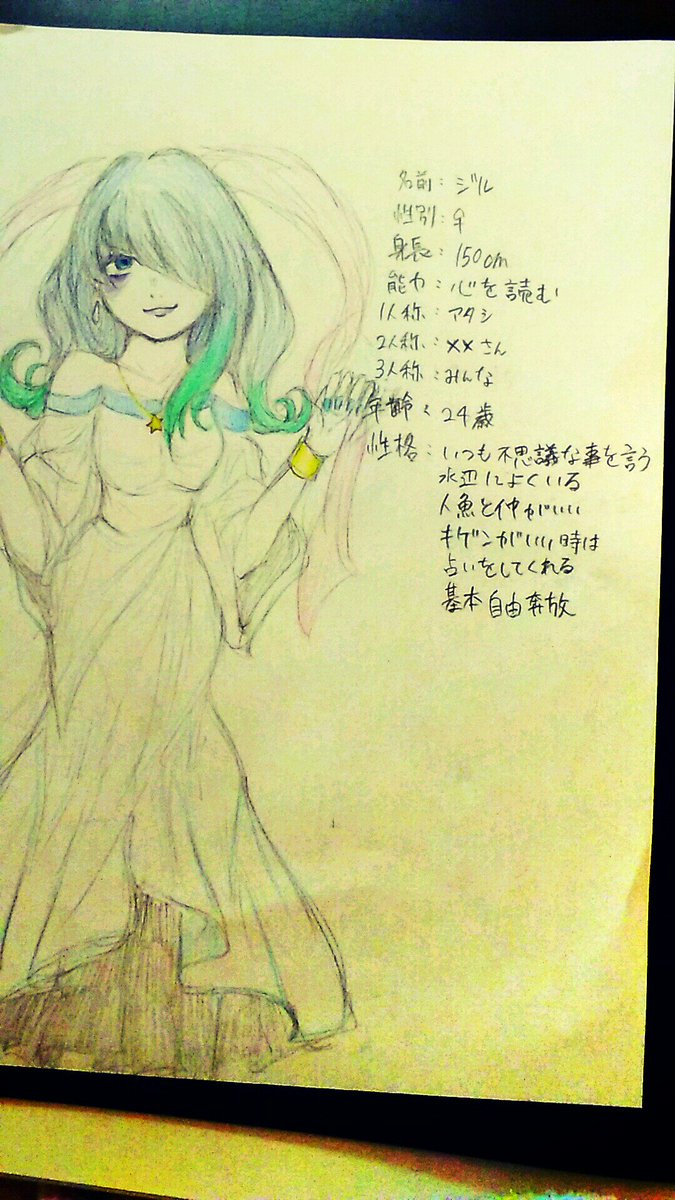 名前：ジル
性別：♀
身長：150cm
能力：心を読む
1人称：アタシ
2人称：××さん
3人称：みんな
年齢：24歳
性格：いつも不思議な事を言う
水辺によくいる
人魚と仲がいい
キゲンがいい時は
占いをしてくれる
基本自由奔放